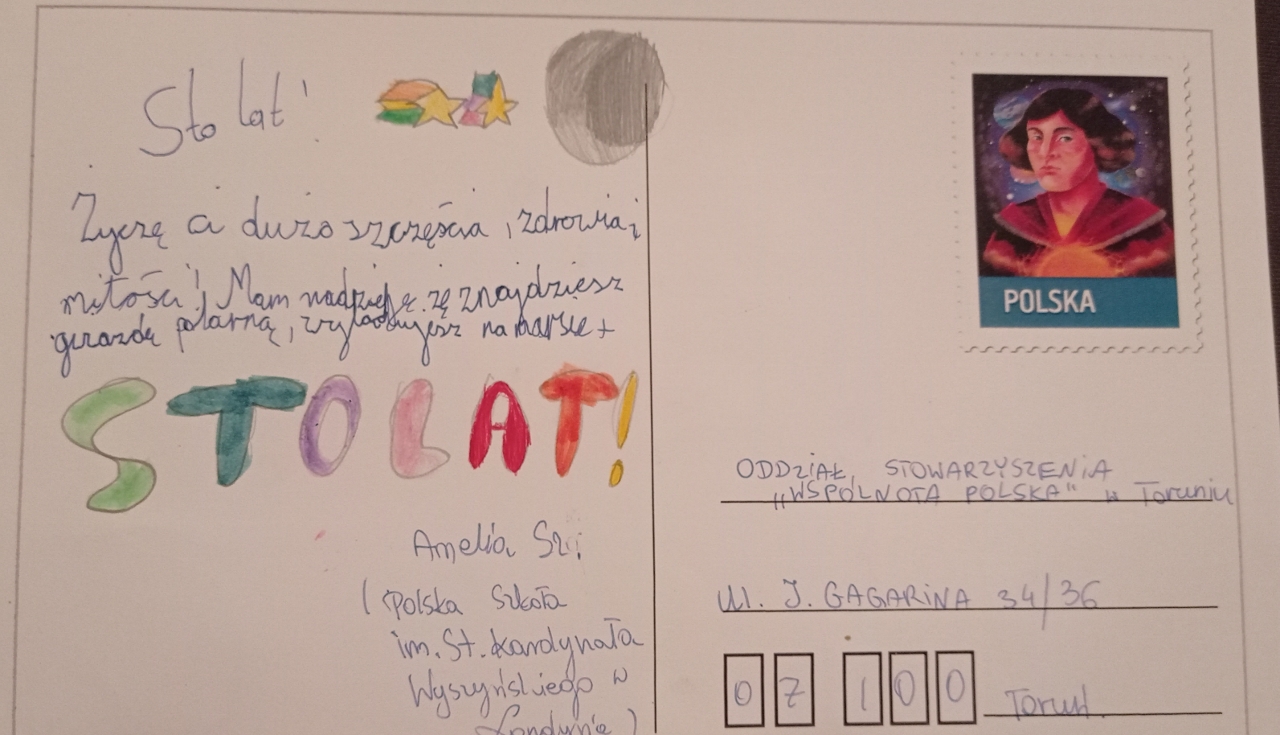 Sto lat!
Życzę ci dużo szczęścia, zdrowia i
miłości! Mam nadzieję, żę znajdziesz
gwiazdę polarną, wylądujesz na marsie +
STO LAT!
Amelia Sz
(Polska Szkoła
im. St. Kardynała
Wyszyńskiego w
Londynie)
POLSKA
ODDZIAŁ STOWARZYSZENIA
„WSPÓLNOTA POLSKA" w Toruniu
Ul. J. GAGARINA 34/36
07 100 Toruń